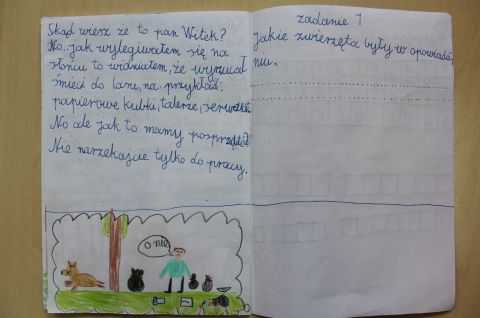 Skąd wiesz że to pan Witek?
No.. jak wylegiwałem się na
słońcu to widziałem, że wyrzucał
śmieci do lasu, na przykład:
papierowe kubki, talerze, serwetki.
No ale jak to mamy posprzątać?
Nie narzekajcie tylko do pracy.
O nie
zadanie 1
Jakie zwierzęta były w opowiada
niu.